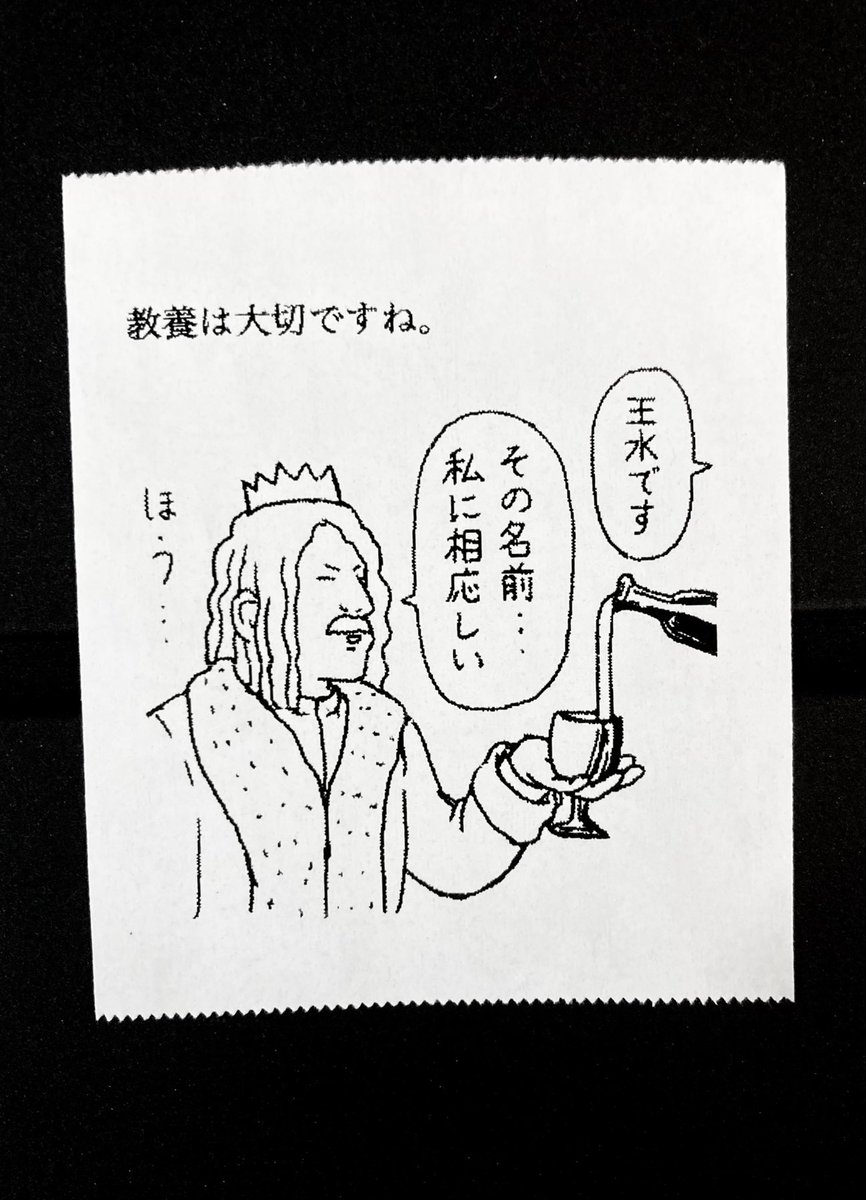 教養は大切ですね。
王水です
その名前…
私に相応しい
ほう…